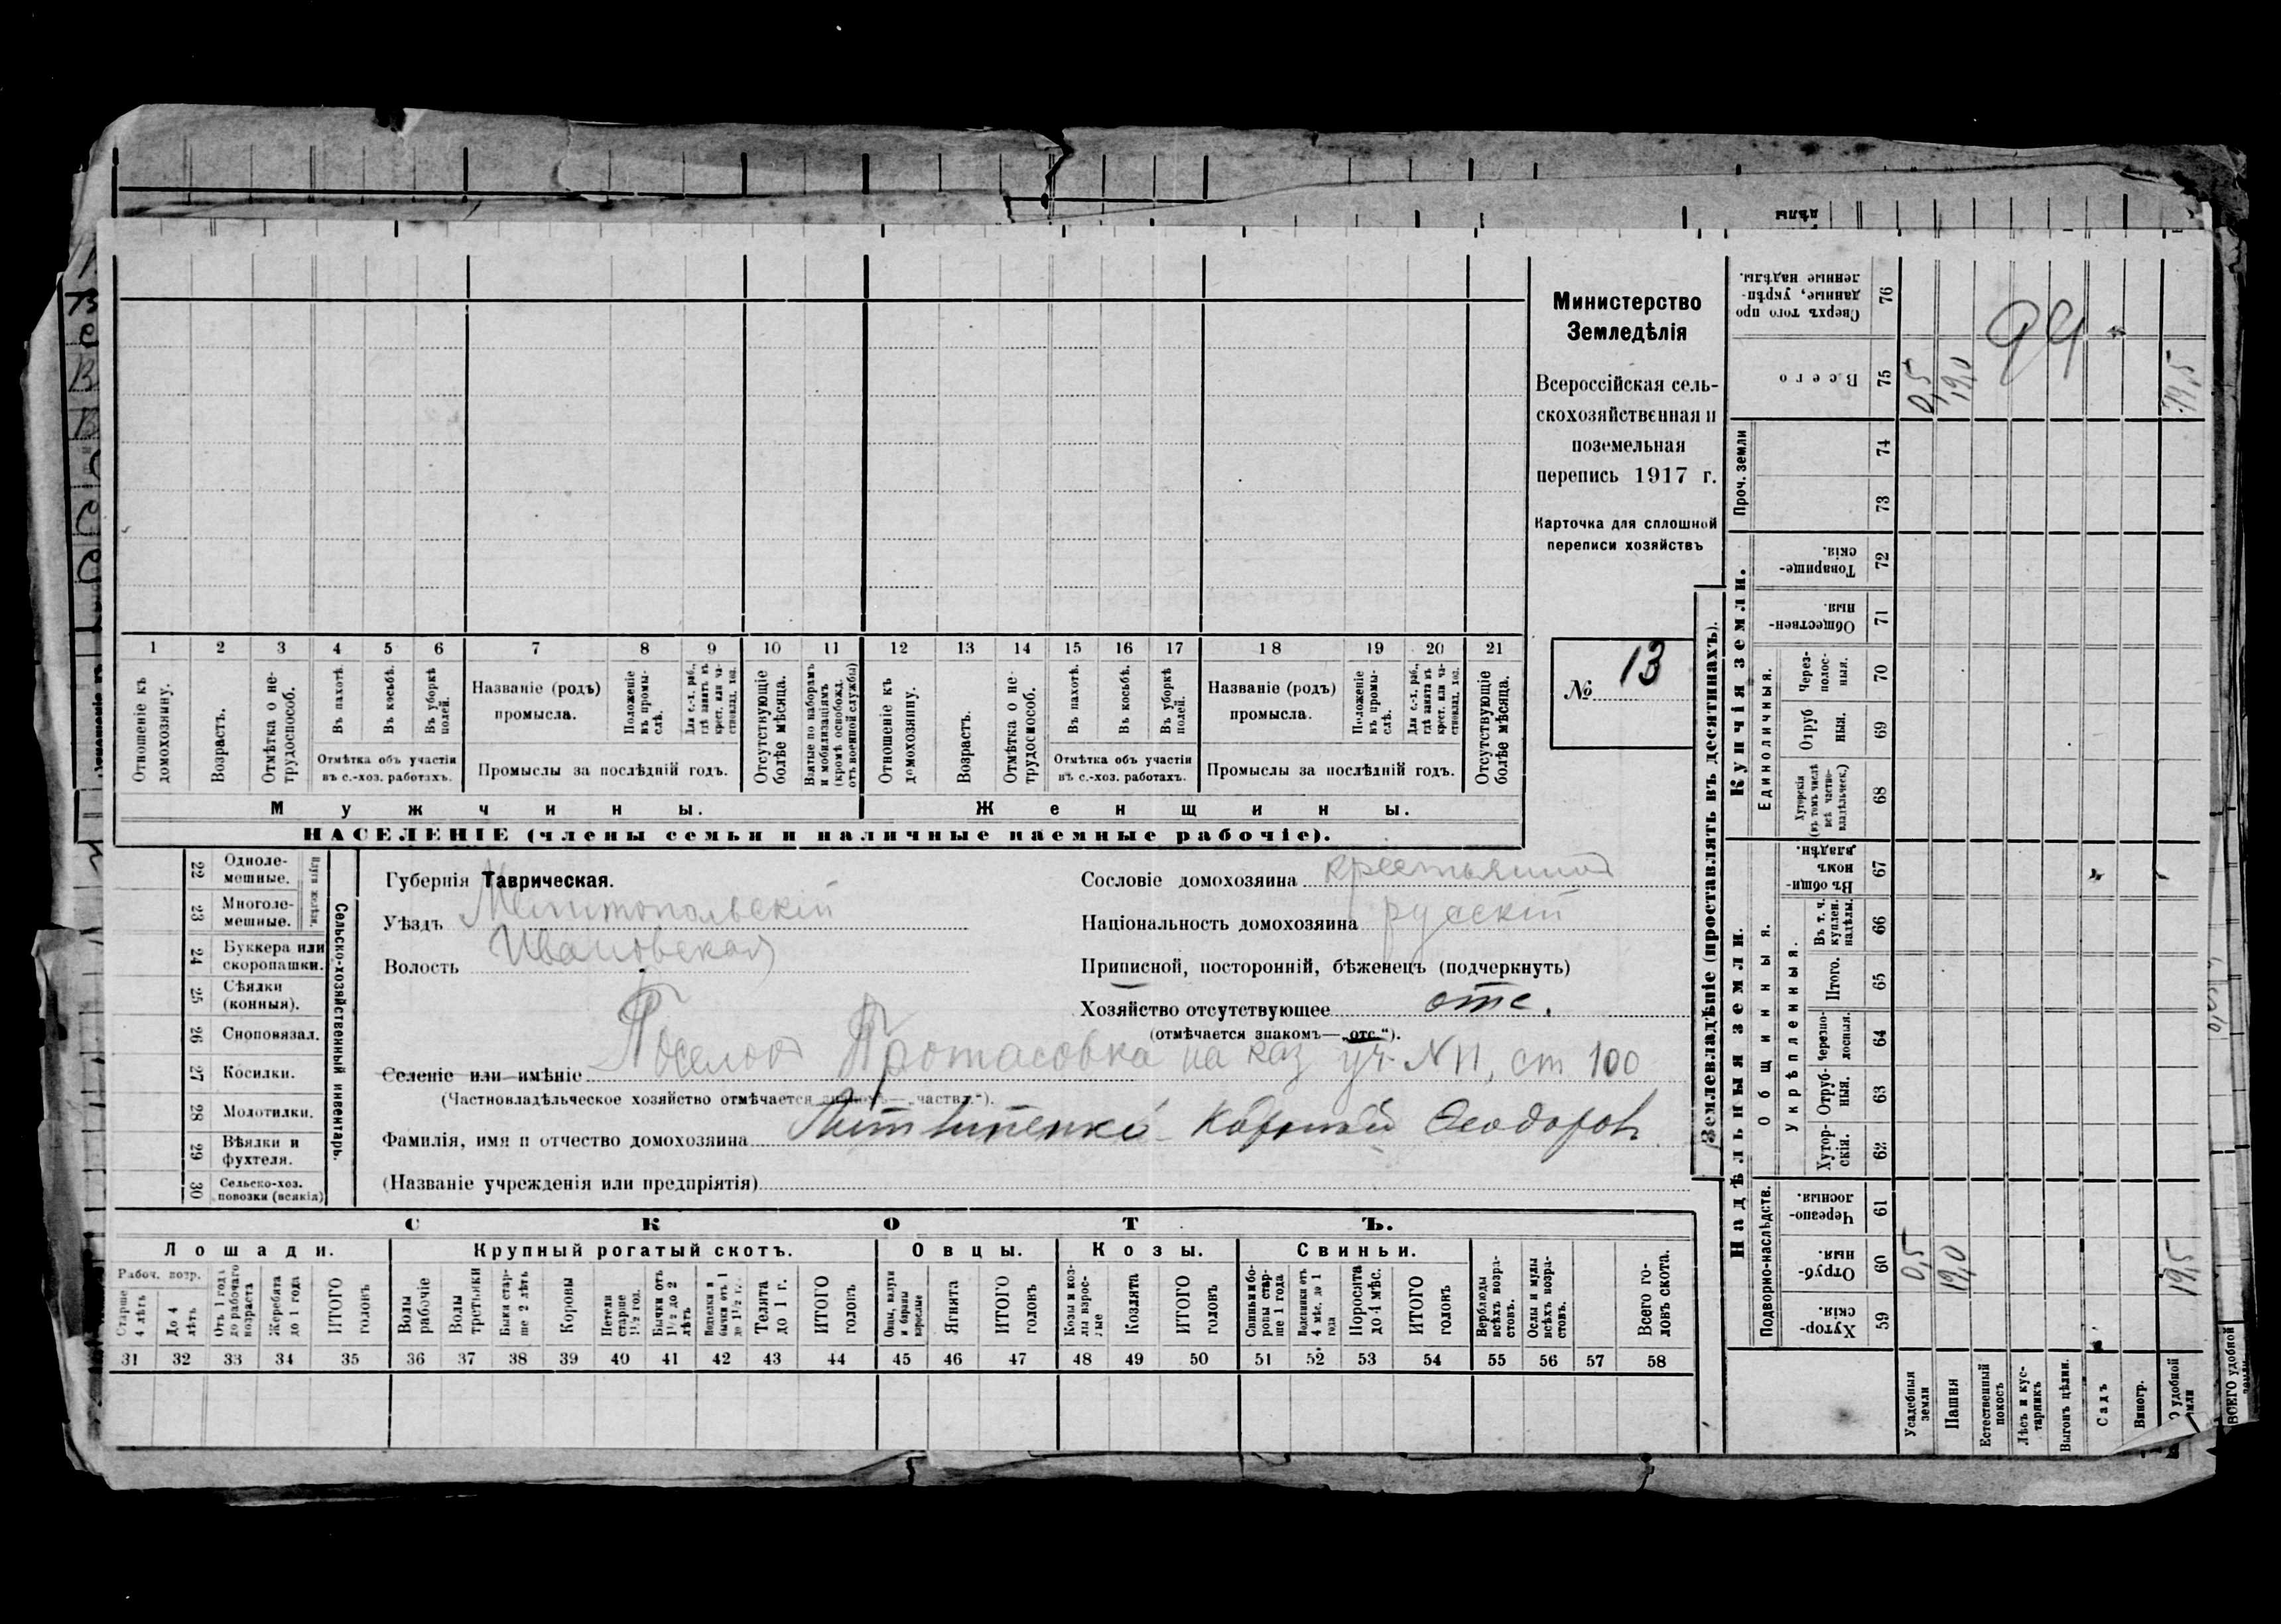 Министерство
Земледѣлія
Всероссійская сель-
скохозяйственная и
поземельная
перепись 1917 г.
Карточка для сплошной
переписи хозяйствъ
№ 13
1 2 3 4 5 6 7 8 9 10 11 12 13 14 15 16 17 18 19 20 21
Отношеніе къ домохозяину.
Возрастъ.
Отмѣтка о не-трудоспособ.
Въ пахотѣ.
Въ косьбѣ.
Въ уборкѣ полей.
Отмѣтка объ участіи
въ с.-хоз. работахъ.
Названіе (родъ)
промысла.
Положеніе въ промы-слѣ.
Для с.-х. раб., гдѣ занятъ въ крест. или ча-стновлад. хоз.
Промыслы за послѣдній годъ.
Отсутствующіе болѣе мѣсяца.
Взятые по наборамъ и мобилизаціямъ (кромѣ освобожд. отъ военной службы)
Отношеніе къ домохозяину.
Возрастъ.
Отмѣтка о не-трудоспособ.
Въ пахотѣ.
Въ косьбѣ.
Въ уборкѣ полей.
Отмѣтка объ участіи
въ с.-хоз. работахъ.
Названіе (родъ)
промысла.
Положеніе въ промы-слѣ.
Для с.-х. раб., гдѣ занята въ крест. или ча-стновлад. хоз.
Промыслы за послѣдній годъ.
Отсутствующіе болѣе мѣсяца.
Мужчины.
Женщины.
НАСЕЛЕНІЕ (члены семьи и наличные наемные рабочіе).
22 Одноле-мешные.
23 Многоле-мешные.
24 Буккера или скоропашки.
25 Сѣялки (конныя).
26 Сноповязал.
27 Косилки.
28 Молотилки.
29 Вѣялки и фухтеля.
30 Сельско-хоз. повозки (всякія)
Сельско-хозяйственный инвентарь.
Губернія Таврическая.
Уѣздъ Мелитопольскій
Волость Ивановская
Сословіе домохозяина крестьянинъ
Національность домохозяина русскій
Приписной, посторонній, бѣженецъ (подчеркнуть)
Хозяйство отсутствующее отс.
(отмѣчается знакомъ—„отс.“).
Селеніе или имѣніе Поселокъ Протасовка на каз уч. N 11, ст 100
(Частновладѣльческое хозяйство отмѣчается знакомъ—„частвл.“).
Фамилія, имя и отчество домохозяина Литвиненко Корней Ѳеодоров
(Названіе учрежденія или предпріятія)
СКОТЪ.
Лошади. Крупный рогатый скотъ. Овцы. Козы. Свиньи.
Рабоч. возр.
Старше 4 лѣтъ
До 4 лѣтъ
Отъ 1 года до рабочаго возраста
Жеребята до 1 года
ИТОГО головъ
Волы рабочіе
Волы третьяки
Быки стар-ше 2 лѣтъ
Коровы
Нетели старше 1½ год.
Бычки отъ 1½ до 2 лѣтъ
Телята до 1 г.
ИТОГО головъ
Овцы, валухи и бараны взрослые
Ягнята
ИТОГО головъ
Козы и коз-лы взрос-лые
Козлята
ИТОГО головъ
Свиньи и бо-ровы стар-ше 1 года
Подсвинки отъ 4 мѣс. до 1 года
Поросята до 4 мѣс.
ИТОГО головъ
Верблюды всѣхъ возра-стовъ.
Ослы и мулы всѣхъ возра-стовъ.
Всего го-ловъ скота.
31 32 33 34 35 36 37 38 39 40 41 42 43 44 45 46 47 48 49 50 51 52 53 54 55 56 57 58
Землевладѣніе (проставлять въ десятинахъ).
Надѣльныя земли.
Купчія земли.
Проч. земли
Подворно-наслѣдств.
Общинныя.
Укрѣпленныя.
Единоличныя.
Хутор-скія. 59
Отруб-ныя. 60
Черезпо-лосныя. 61
Хутор-скія. 62
Отруб-ныя. 63
Черезпо-лосныя. 64
Итого. 65
Въ т. ч. куплен. надѣлы. 66
Въ общи-номъ владѣн. 67
Хуторскія (въ томъ числѣ всѣ частно-владѣльческ.) 68
Отруб ныя. 69
Через-полос-ныя. 70
Обществен-ныя. 71
Товарище-скія. 72
73
74
Всего 75
Сверхъ того про данные, укрѣп-ленные надѣлы. 76
Усадебныя земли 0,5 0,5
Пашня 19,0 19,0
Естественный покосъ
Лѣсъ и кус-тарникъ
Выгонъ цѣлин.
Садъ
Виногр.
удобной земли 19,5 19,5
ВСЕГО удобной